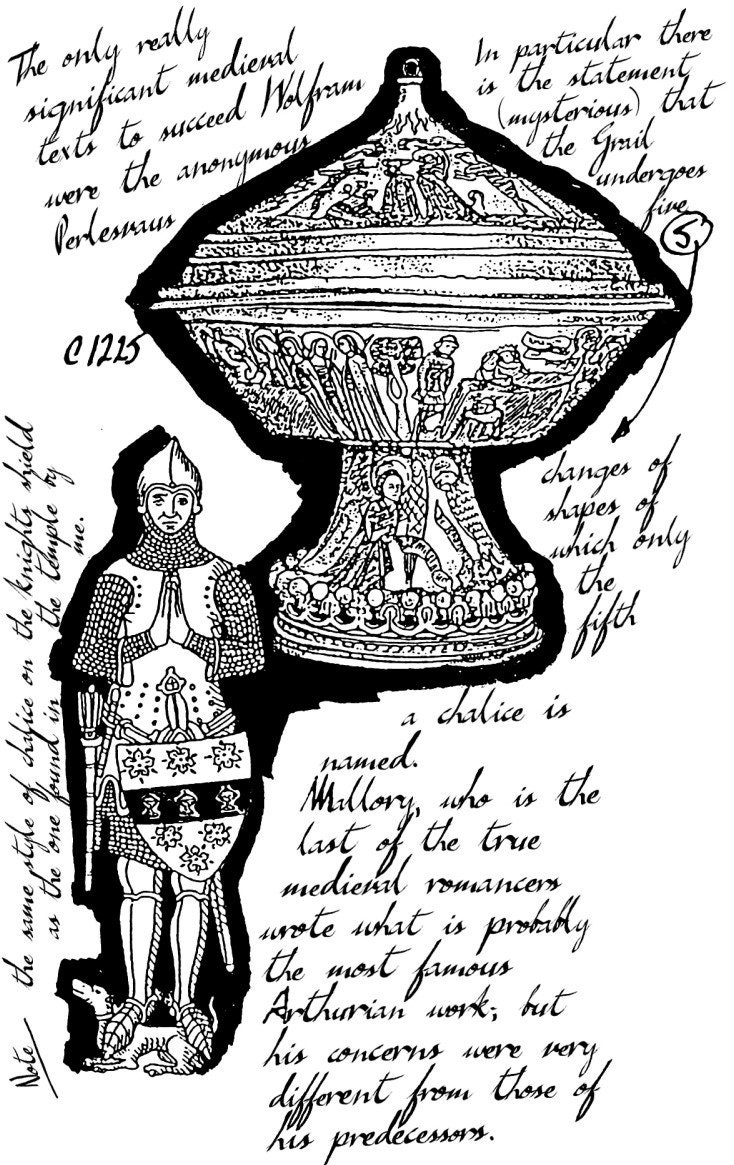 The only really
significant medieval
texts to succeed Wolfram
were the anonymous
Perlesvaus
C 1225
In particular there
is the statement
(mysterious) that
the Grail
undergoes
five
5
changes of
shapes of
which only
the
fifth
a chalice is
named.
Mallory, who is the
last of the true
medieval romancers
wrote what is probably
the most famous
Arthurian work; but
his concerns were very
different from those of
his predecessors.
Note the same style of chalice on the knights shield
as the one found in the temple by
me.